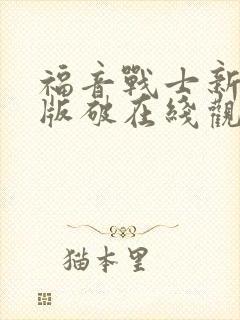 福音戰士新
版破在綫觀
猫本里